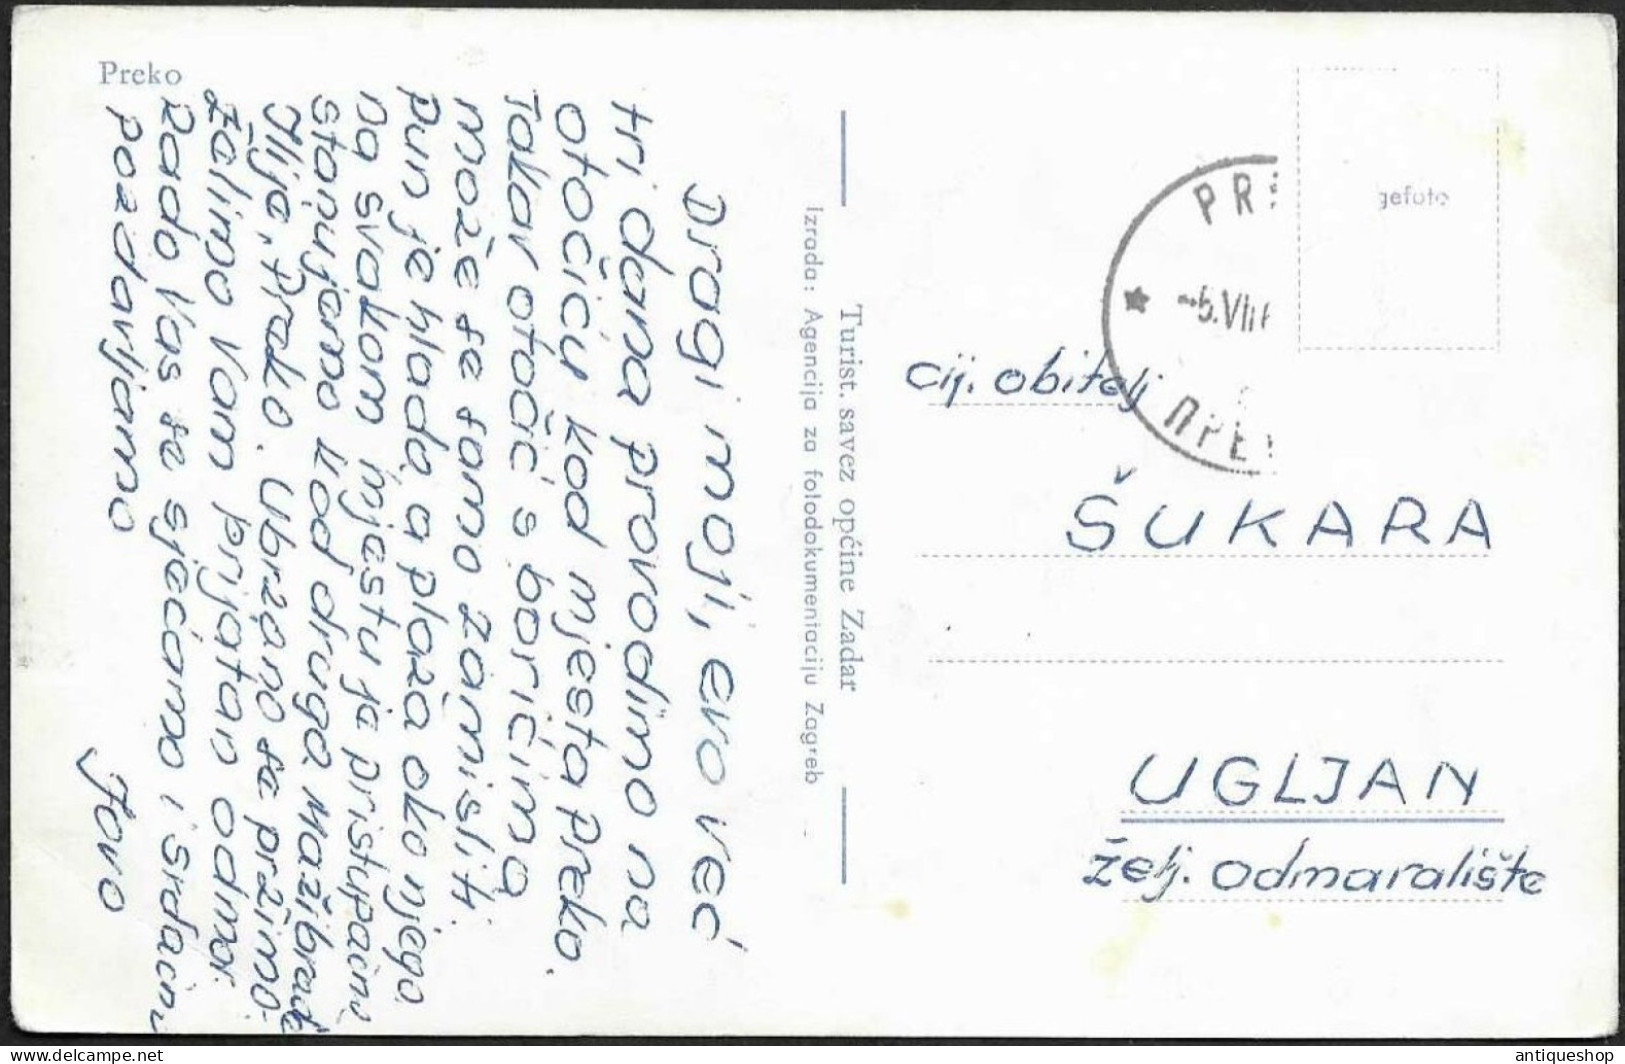 Preko
Dragi moji, evo već
tri dana provodimo na
otočiću kod mjesta Preko.
Takav otočić s borićima
može se samo zamisliti.
Pun je hlada, a plaža oko njega.
Na svakom mjestu je pristupačni
stanujemo kod druga Mažibrade
Ilije, Preko. Ubrzano se pržimo.
Želimo Vam prijatan odmor.
Rado Vas se sjećamo i srdačno
pozdravljamo
Jovo
Turist. savez općine Zadar
Izrada: Agencija za fotodokumentaciju Zagreb
gefoto
PRE
-5.VIII
ПРЕ
Cij. obitelj
ŠUKARA
UGLJAN
želj. odmaralište
antiqueshop